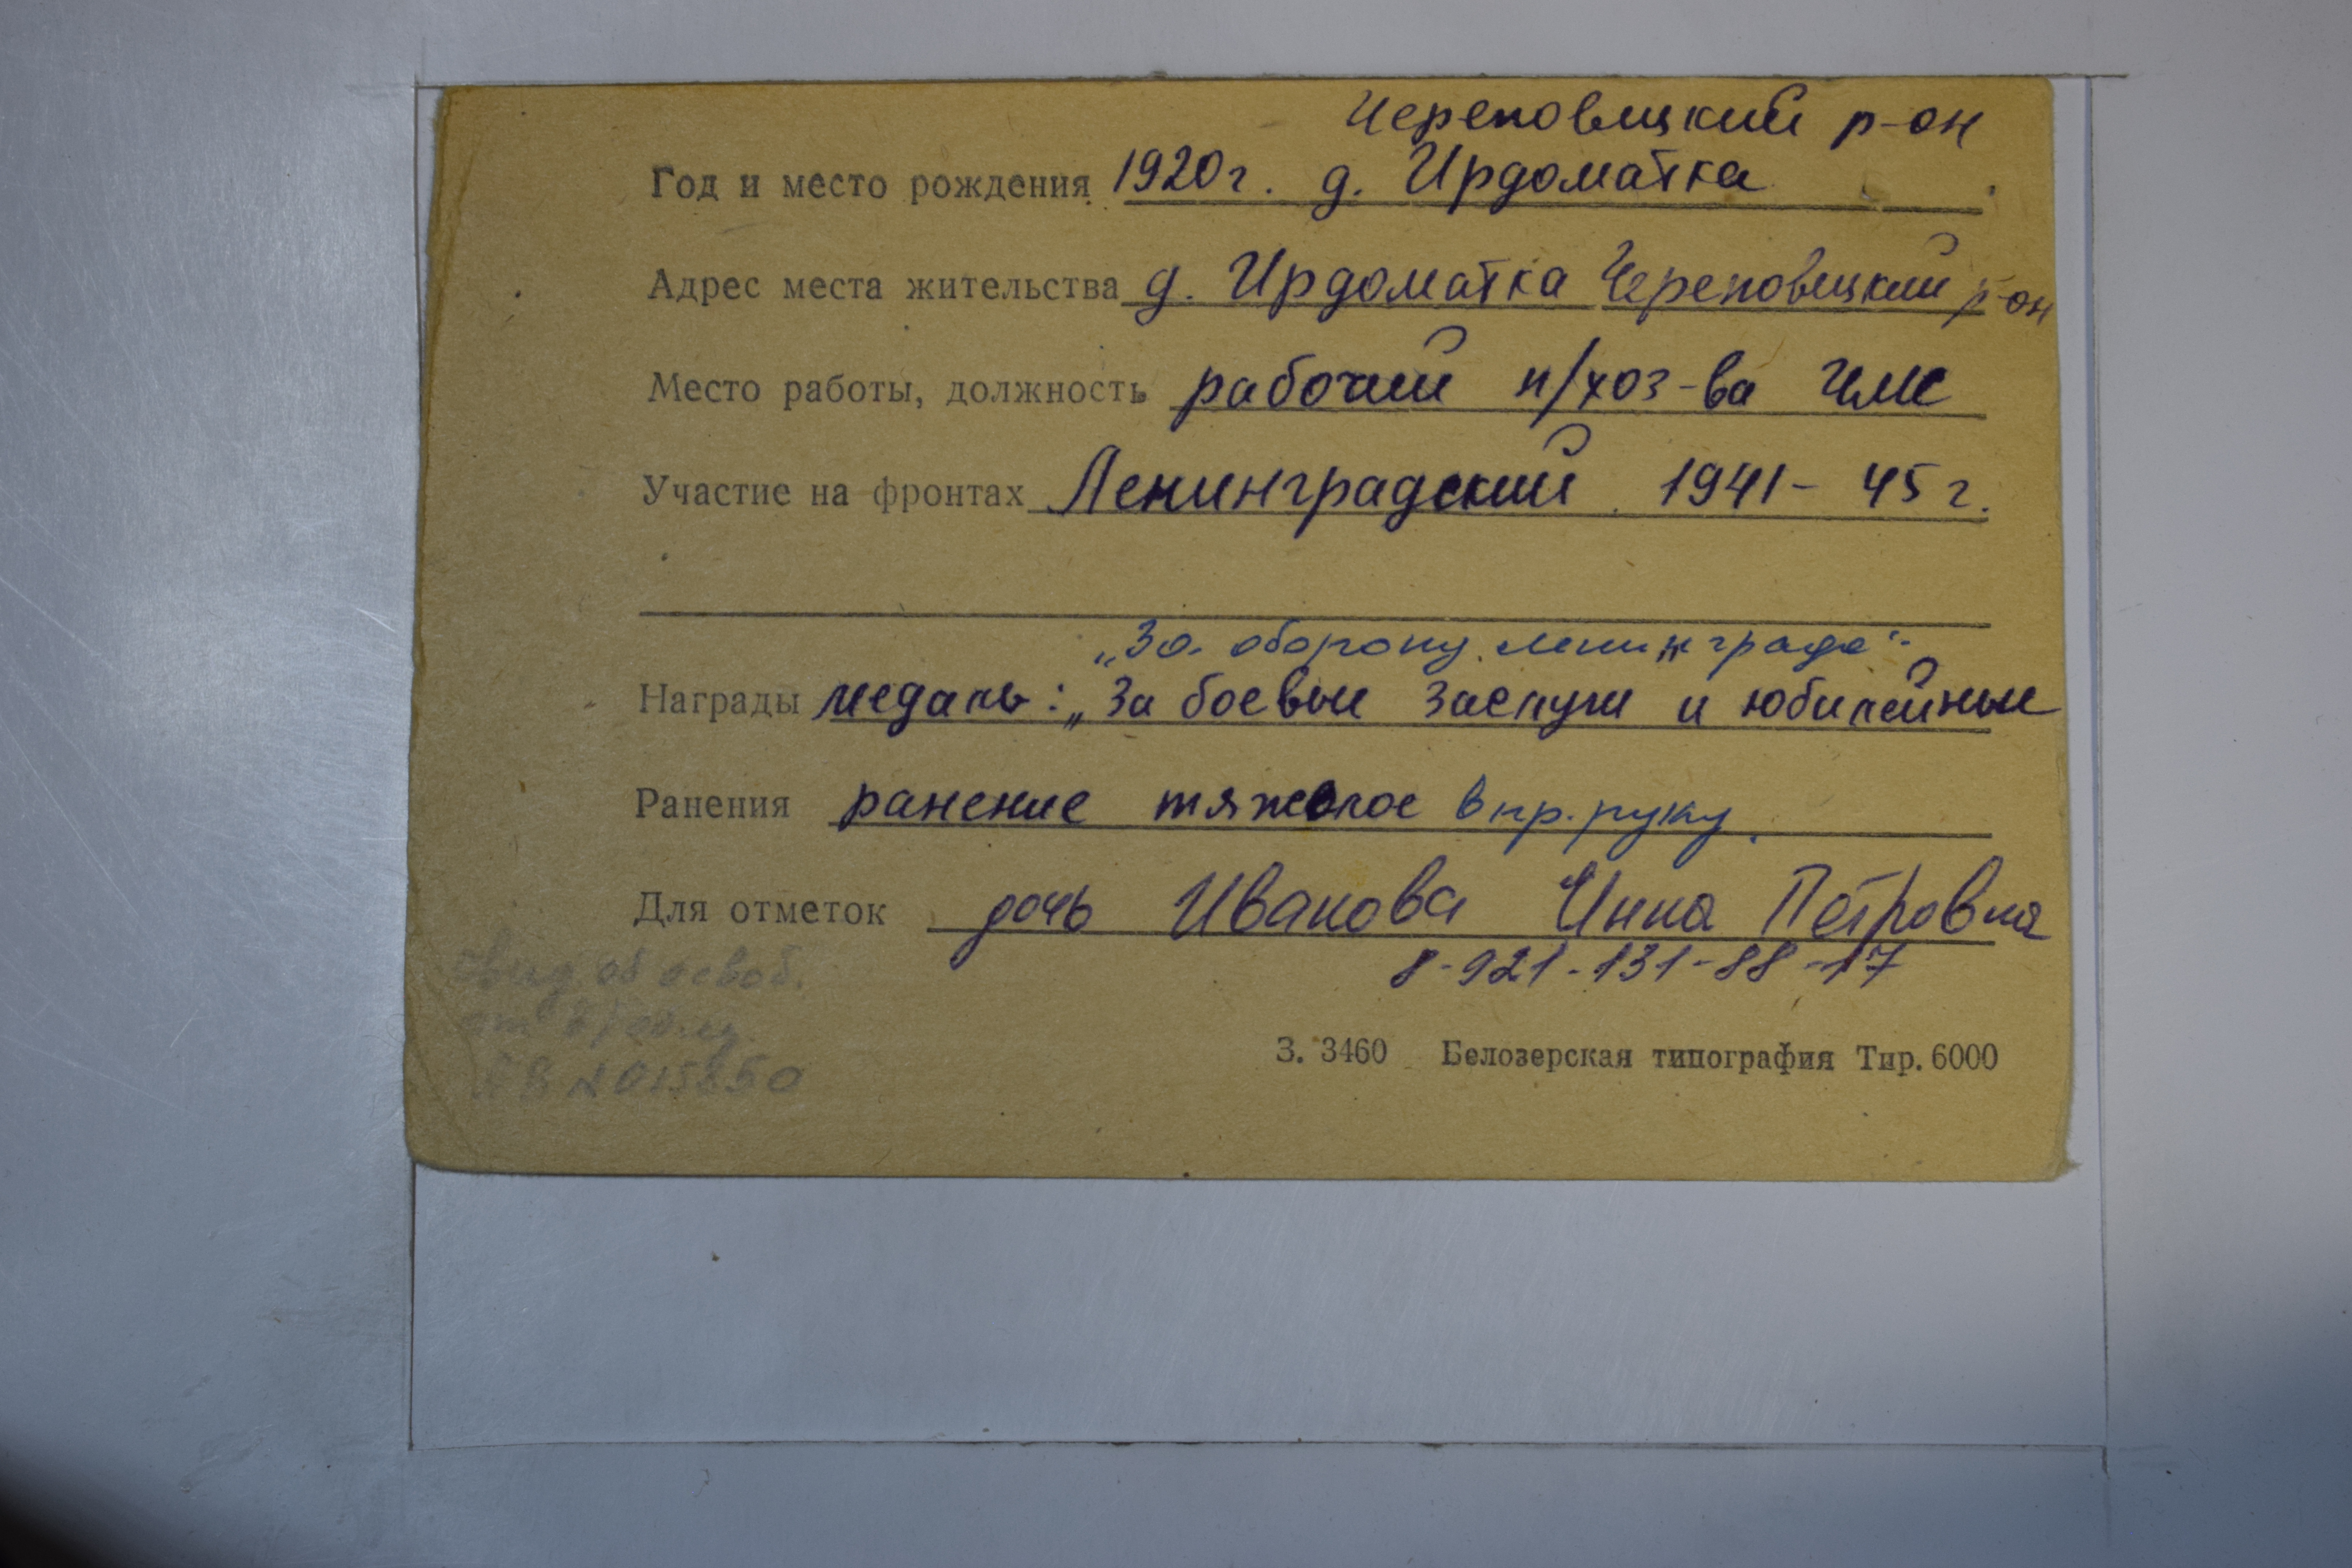 Череповецкий р-он
Год и место рождения 1920г. д. Ирдоматка
Адрес места жительства д. Ирдоматка Череповецкий р-он
Место работы, должность рабочий п/хоз-ва ЧМК
Участие на фронтах Ленинградский 1941- 45 г.
„За оборону Ленинграда“.
Награды медаль: „За боевые заслуги и юбилейные
Ранения ранение тяжелое в пр. руку.
Для отметок дочь Иванова Инна Петровна
8-921-131-88-17
об освоб.
от
З. 3460 Белозерская типография Тир. 6000